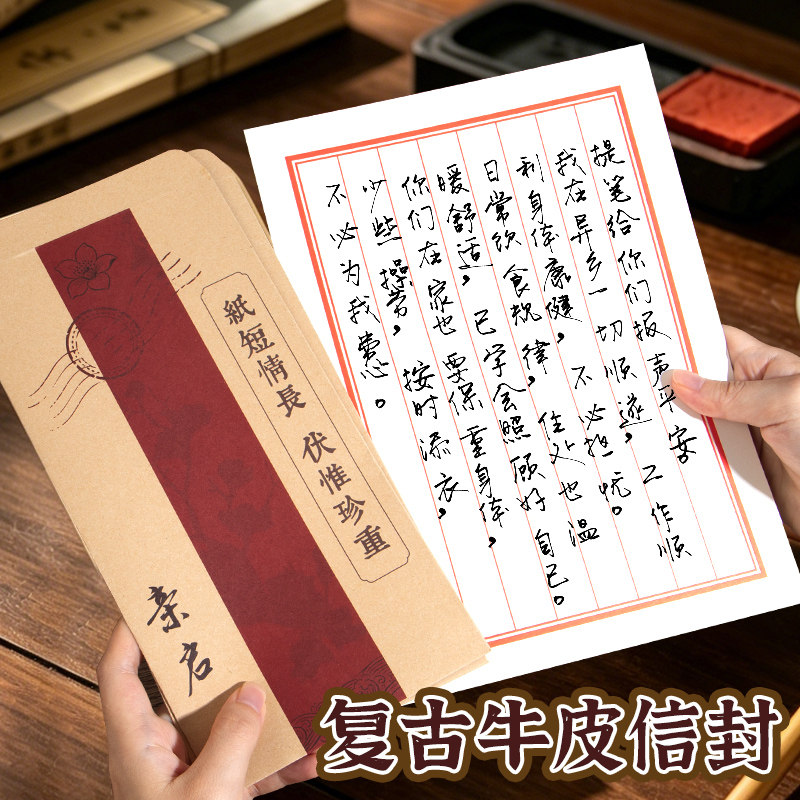 提笔给你们报声平安。
我在异乡一切顺遂，工作顺
利身体康健，不必担忧。
日常饮食规律，住处也温
暖舒适，已学会照顾好自己。
你们在家也要保重身体，
少些操劳，按时添衣，
不必为我费心。
紙短情長 伏惟珍重
亲启
复古牛皮信封